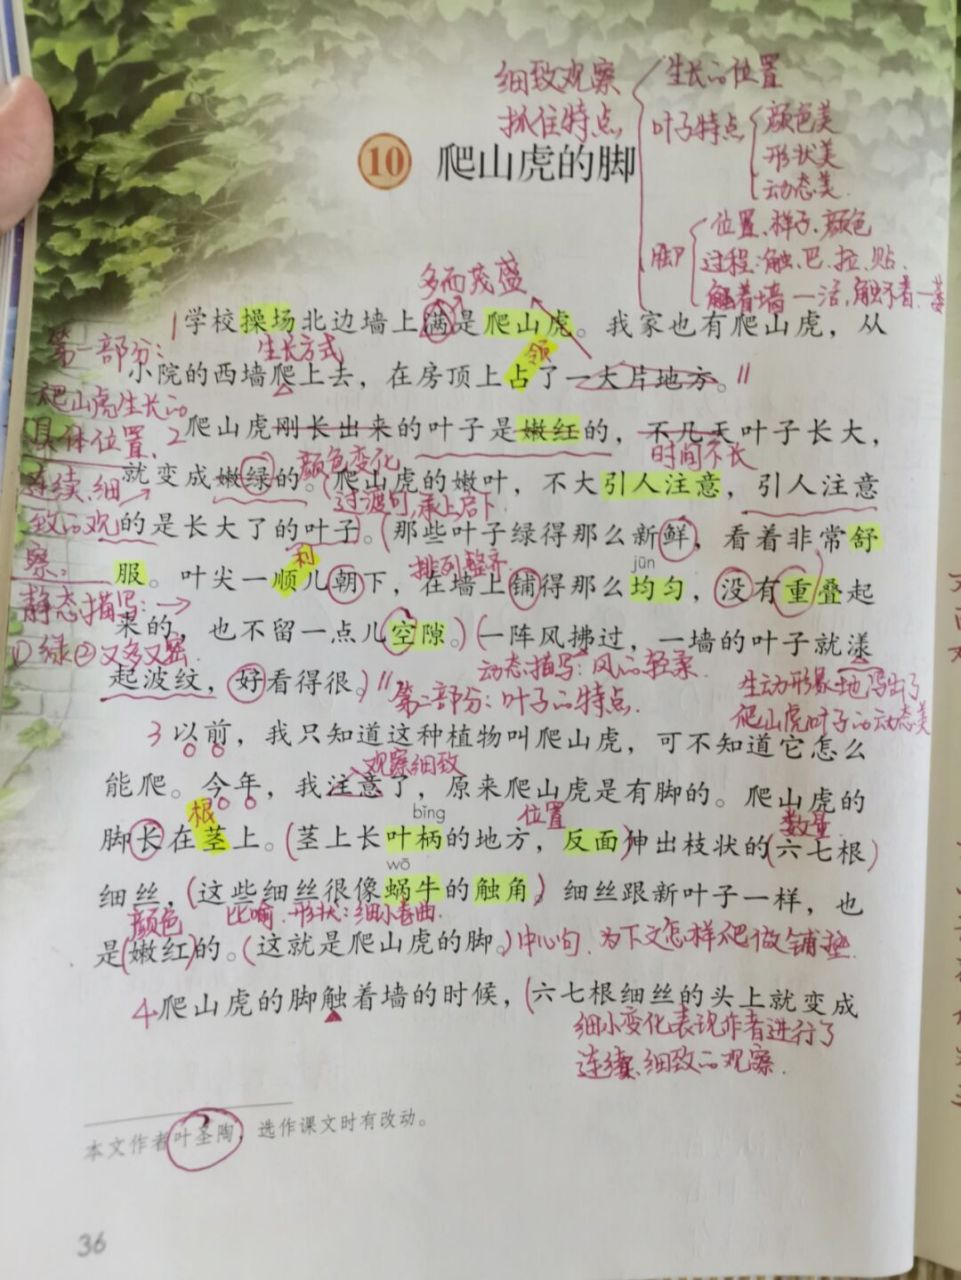 细致观察
抓住特点
生长的位置
叶子特点
颜色美
形状美
动态美
脚
位置、样子、颜色
过程:触、巴、拉、贴
触着墙一活,触不着一萎
10 爬山虎的脚
多而茂盛
1学校操场北边墙上满是爬山虎。我家也有爬山虎,从
第一部分:
生长方式
领
小院的西墙爬上去,在房顶上占了一大片地方。
爬山虎生长的
具体位置、
2爬山虎刚长出来的叶子是嫩红的,不几天叶子长大,
颜色变化
时间不长
连续、细
就变成嫩绿的。爬山虎的嫩叶,不大引人注意,引人注意
过渡句,承上启下
致的观
的是长大了的叶子。(那些叶子绿得那么新鲜,看着非常舒
察。
利
排列整齐
jūn
服。叶尖一顺儿朝下,在墙上铺得那么均匀,没有重叠起
静态描写:
来的,也不留一点儿空隙。)(一阵风拂过,一墙的叶子就漾
①绿②又多又密.
动态描写:风的轻柔.
起波纹,好看得很。)
第二部分:叶子的特点.
生动形象地写出了
爬山虎叶子的动态美
3以前,我只知道这种植物叫爬山虎,可不知道它怎么
观察细致
能爬。今年,我注意了,原来爬山虎是有脚的。爬山虎的
根
bǐng
位置
数量
脚长在茎上。(茎上长叶柄的地方,反面)伸出枝状的(六七根)
wō
细丝,(这些细丝很像蜗牛的触角。)细丝跟新叶子一样,也
颜色
比喻.形状:细小卷曲.
是(嫩红)的。(这就是爬山虎的脚。)中心句.为下文怎样爬做铺垫.
4爬山虎的脚触着墙的时候,(六七根细丝的头上就变成
细小变化表现作者进行了
连续、细致的观察.
本文作者叶圣陶,选作课文时有改动。
36